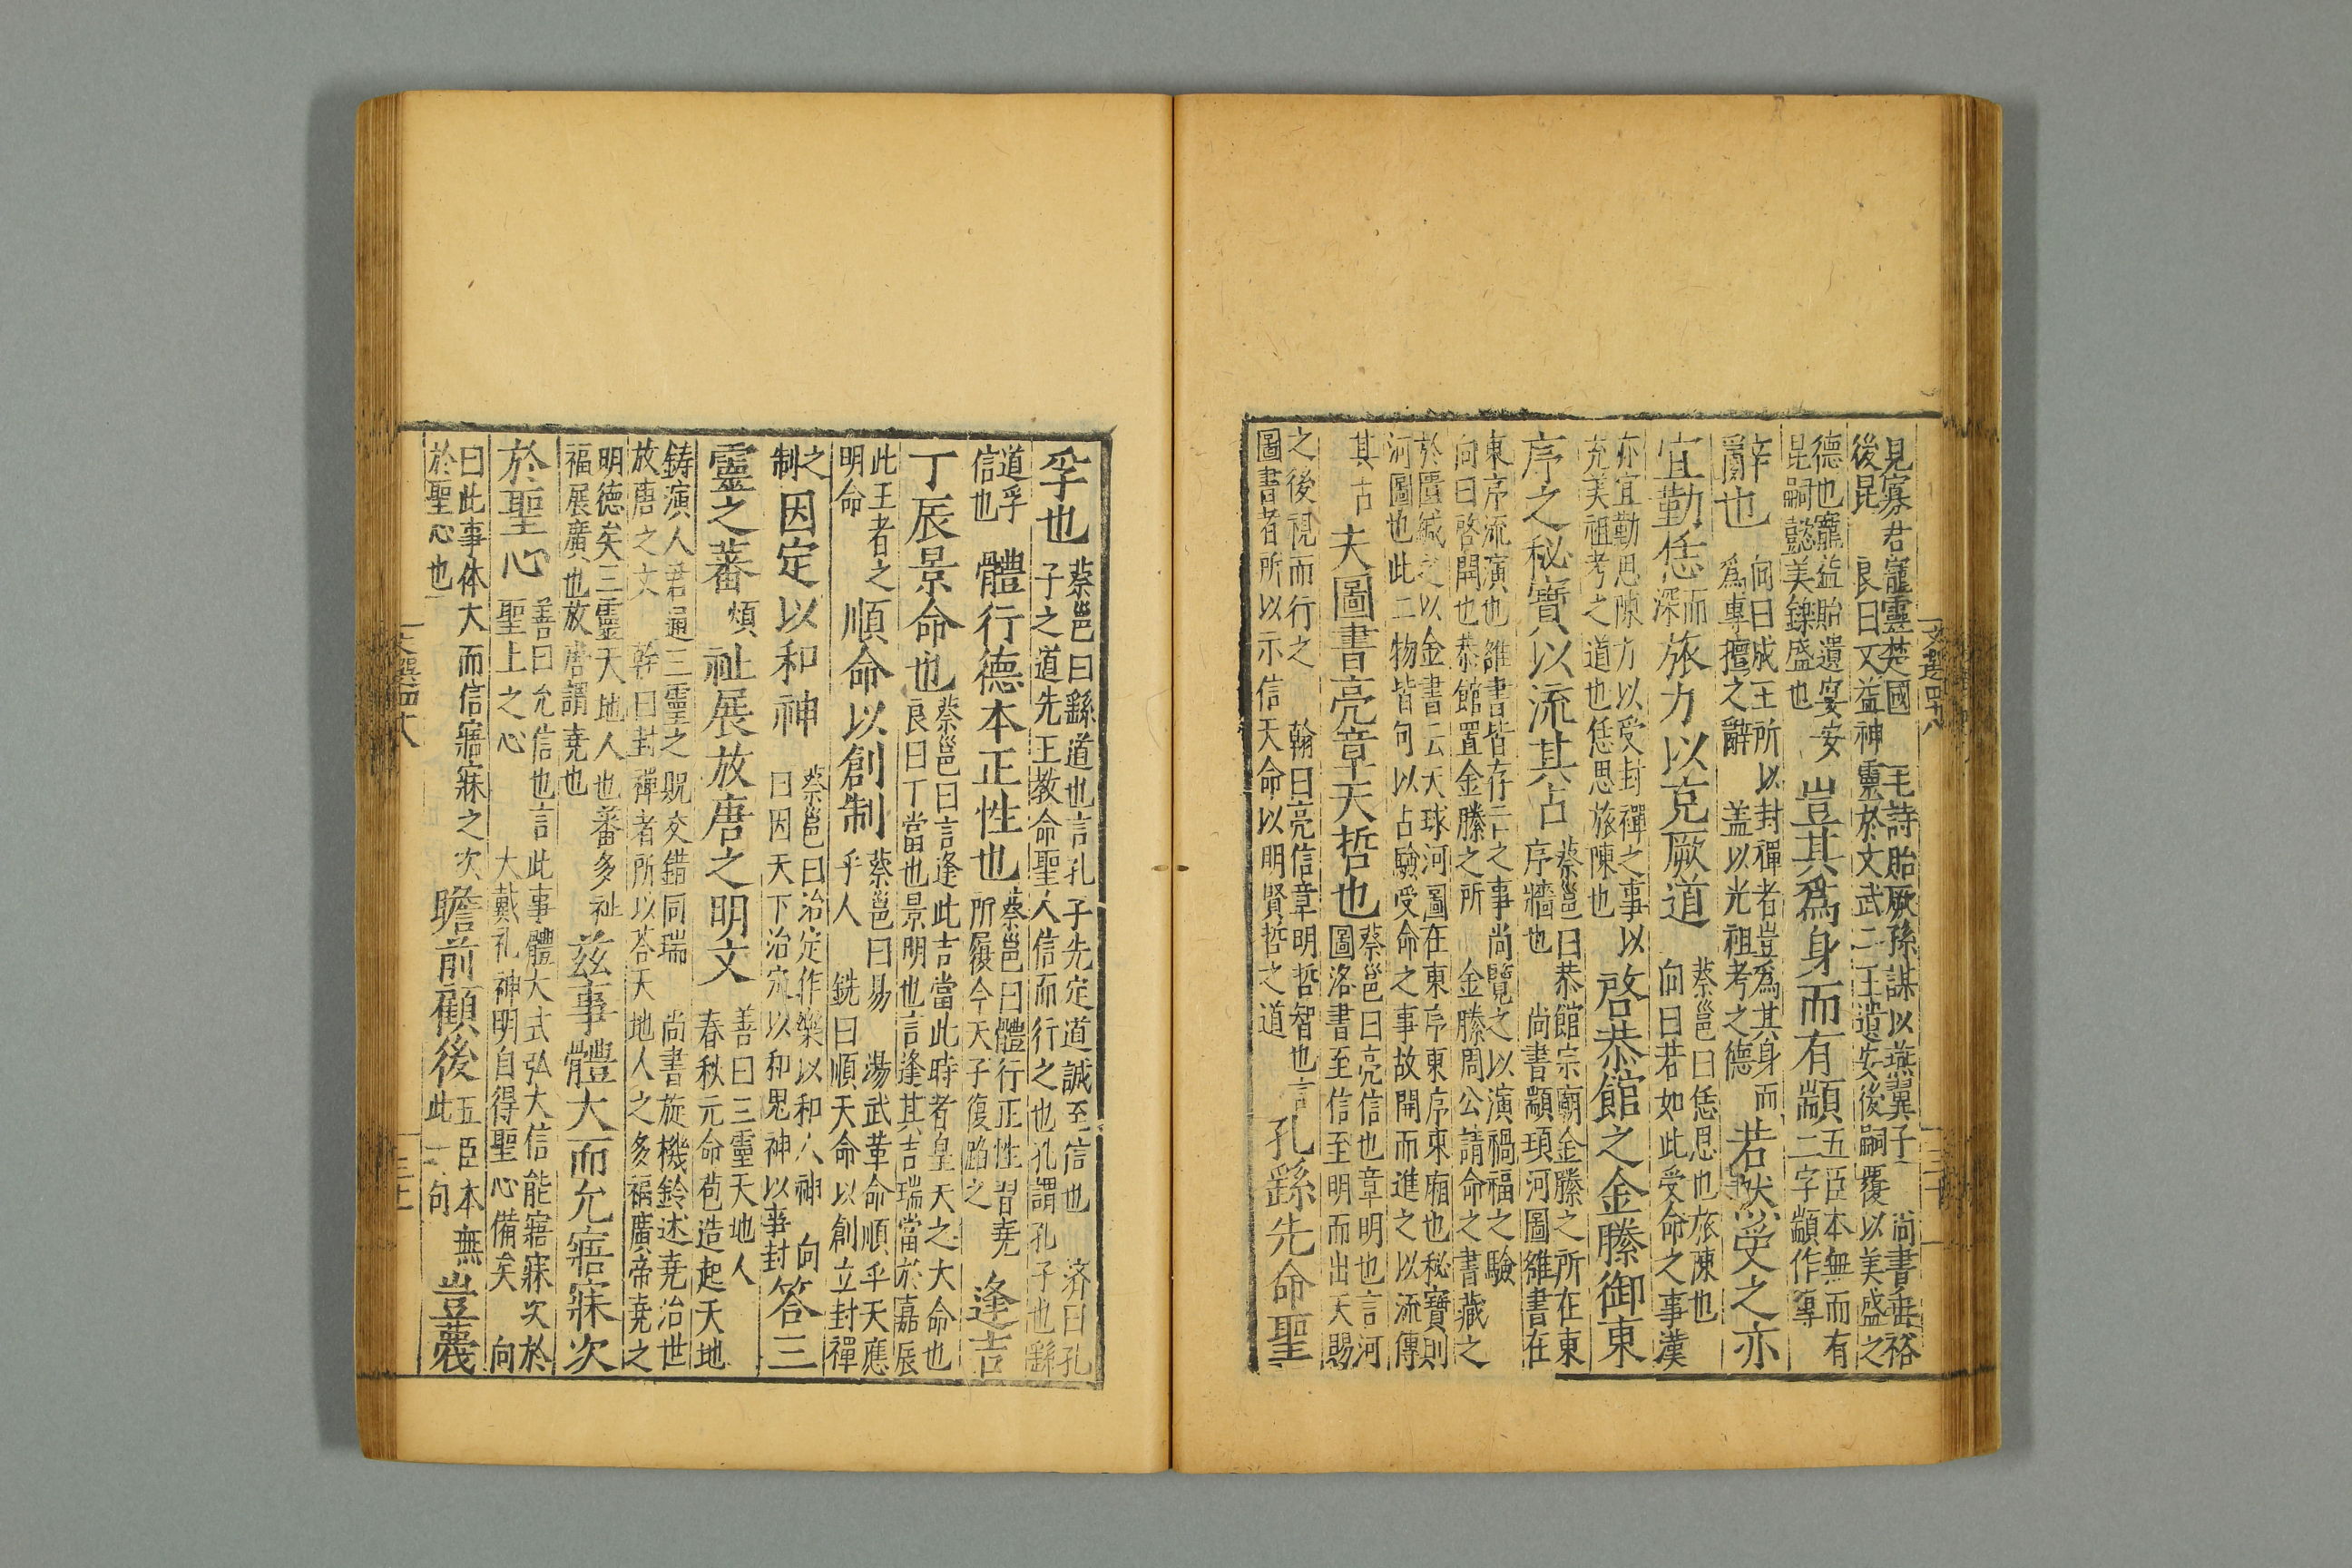 見寡君寵靈楚國　毛詩貽厥孫謀以燕翼子　尚書垂裕
後昆　良曰又益神靈於文武二王遺安後嗣覆以美盛之
德也寵益貽遺宴安
昆嗣懿美鑠盛也
豈其爲身而有顓
五臣本無而有
二字顓作專
辞也
向曰成王所以封禪者豈爲其身而
爲專擅之辭　盖以光祖考之德
若然受之亦
宜勤恁
而
深
旅力以充厥道
蔡邕曰恁思也旅陳也
向曰若如此受命之事漢
亦宜勤思陳力以受封禪之事以
充美祖考之道也恁思旅陳也
啓恭館之金縢御東
序之秘寶以流其占
蔡邕曰恭館宗廟金縢之所在東
序牆也　尚書顓頊河圖雒書在
東序流演也雒書皆存亡之事尚覽之以演禍福之驗
向曰啓開也恭館置金縢之所　金縢周公請命之書藏之
於匱緘之以金書云天球河圖在東序東序東廂也秘寶則
河圖也此二物皆句以占驗受命之事故開而進之以流傳
其占
夫圖書亮章天哲也
蔡邕曰亮信也章明也言河
圖洛書至信至明而出天賜
之後視而行之　翰曰亮信章明哲智也言
圖書者所以示信天命以明賢哲之道
孔繇先命聖
孚也
蔡邕曰繇道也言孔子先定道誠至信也　濟曰孔
子之道先王教命聖人信而行之也孔謂孔子也繇
道孚
信也
體行德本正性也
蔡邕曰體行正性習堯
所履今天子復蹈之
逢吉
丁辰景命也
蔡邕曰言逢此吉當此時者皇天之大命也
良曰丁當也景明也言逢其吉瑞當於嘉辰
此王者之
明命
順命以創制
蔡邕曰易　湯武革命順乎天應
乎人　銑曰順天命以創立封禪
之
制
因定以和神
蔡邕曰治定作樂以和人神　向
曰因天下治定以和鬼神以事封
答三
靈之蕃
煩
祉展放唐之明文
善曰三靈天地人
春秋元命苞造起天地
鋳演人君通三靈之貺交錯同瑞　尚書旋機鈴述堯治世
放唐之文　幹曰封禪者所以荅天地人之多福廣帝堯之
明德矣三靈天地人也蕃多祉
福展廣也放唐謂堯也
兹事體大而允寤寐次
於聖心
善曰允信也言此事體大式弘大信能寤寐次於
聖上之心　大戴礼神明自得聖心備矣　向
曰此事体大而信寤寐之次
於聖心也
瞻前顧後
五臣本無
此一句
豈蔑
文選四十八
三十
文選四十八
三十一